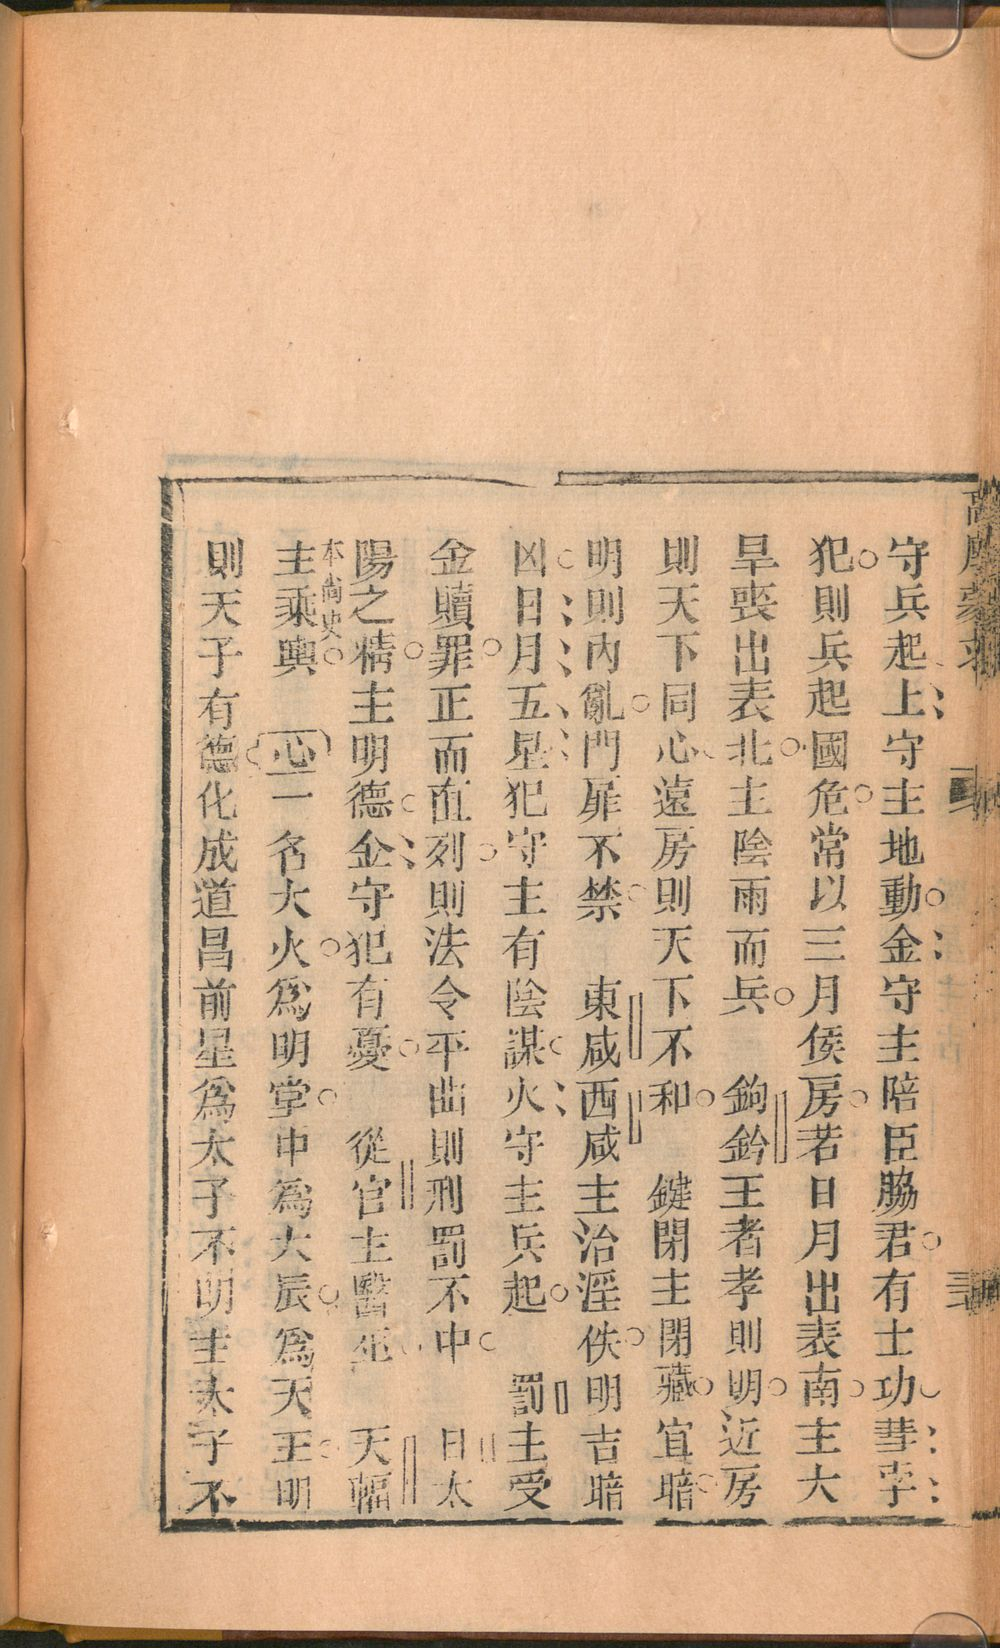 守兵起上守主地動金守主陪臣脇君有土功彗孛
犯則兵起國危常以三月侯房若日月出表南主大
旱喪出表北主陰雨而兵 鉤鈐王者孝則明近房
則天下同心遠房則天下不和 鍵閉主閉藏宜暗
明則內亂門扉不禁 東咸西咸主治淫佚明吉暗
凶日月五星犯守主有陰謀火守主兵起 罰主受
金贖罪正而直列則法令平曲則刑罰不中 日太
陽之精主明德金守犯有憂 從官主醫巫 天輻
主乘輿 心一名大火爲明堂中爲大辰爲天王明
本尚史
則天子有德化成道昌前星爲太子不明主太子不